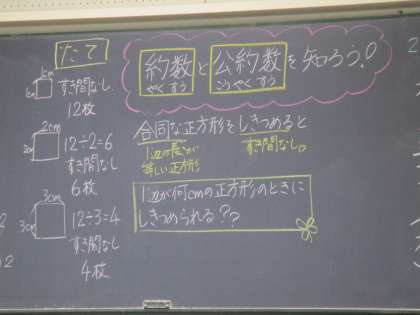 たて
1cm
1cm
すき間なし
12枚
2cm
2cm
12÷2=6
すき間なし
6枚
3cm
3cm
12÷3=4
すき間なし
4枚
約数と公約数を知ろう!
やくすう こうやくすう
合同な正方形をしきつめると
1辺の長さが
等しい正方形
すき間なし。
1辺が何cmの正方形のときに
しきつめられる??
2